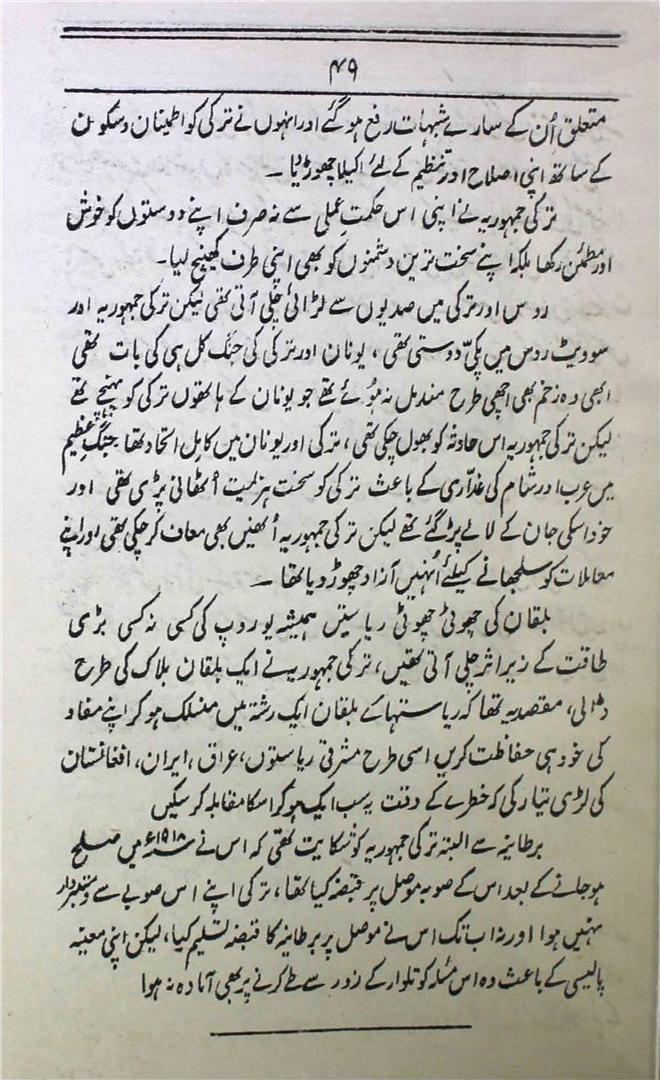 ۴۹
متعلق اُن کے سارے شبہات رفع ہو گئے اور انہوں نے ترکی کو اطمینان و سکون
کے ساتھ اپنی اصلاح اور تنظیم کے لئے اکیلا چھوڑ دیا ۔
ترکی جمہوریہ نے اپنی اس حکمت عملی سے نہ صرف اپنے دوستوں کو خوش
اور مطمئن رکھا بلکہ اپنے سخت ترین دشمنوں کو بھی اپنی طرف کھینچ لیا۔
روس اور ترکی میں صدیوں سے لڑائی چلی آتی تھی لیکن ترکی جمہوریہ اور
سوویٹ روس میں پکی دوستی تھی ، یونان اور ترکی کی جنگ کل ہی کی بات تھی
ابھی وہ زخم بھی اچھی طرح مندمل نہ ہوئے تھے جو یونان کے ہاتھوں ترکی کو پہنچے تھے
لیکن ترکی جمہوریہ اس حادثہ کو بھول چکی تھی ، ترکی اور یونان میں کامل اتحاد تھا جنگِ عظیم
میں عرب اور شام کی غدّاری کے باعث ترکی کو سخت ہزیمت اُٹھانی پڑی تھی اور
خود اسکی جان کے لالے پڑ گئے تھے لیکن ترکی جمہوریہ اُنھیں بھی معاف کر چکی تھی اور اپنے
معاملات کو سلجھانے کیلئے اُنہیں آزاد چھوڑ دیا تھا ۔
بلقان کی چھوٹی چھوٹی ریاستیں ہمیشہ یوروپ کی کسی نہ کسی بڑی
طاقت کے زیر اثر چلی آتی تھیں ، ترکی جمہوریہ نے ایک بلقان بلاک کی طرح
ڈالی ، مقصد یہ تھا کہ ریاستہائے بلقان ایک رشتہ میں منسلک ہو کر اپنے مفاد
کی خود ہی حفاظت کریں اسی طرح مشرقی ریاستوں، عراق ، ایران، افغانستان
کی لڑی تیار کی کہ خطرے کے وقت یہ سب ایک ہو کر اسکا مقابلہ کر سکیں
برطانیہ سے البتہ ترکی جمہوریہ کو شکایت تھی کہ اس نے ۱۹۱۸ء میں صلح
ہو جانے کے بعد اس کے صوبہ موصل پر قبضہ کیا تھا ، ترکی اپنے اس صوبے سے دستبردار
نہیں ہوا اور نہ اب تک اس نے موصل پر برطانیہ کا قبضہ تسلیم کیا ، لیکن اپنی معینہ
پالیسی کے باعث وہ اس مسئلہ کو تلوار کے زور سے طے کرنے پر بھی آمادہ نہ ہوا